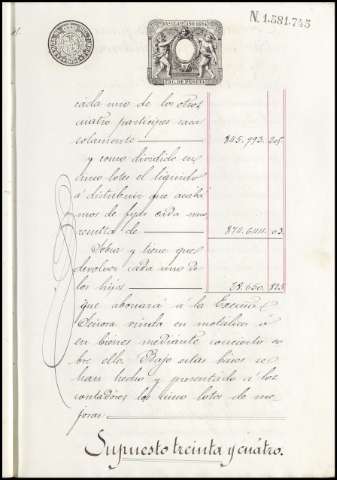 N. 1.581.745
cada uno de los otros
cuatro partícipes saca
solamente 845.993. 205
y como dividido en
cinco lotes el líquido
á distribuir que acabá
mos de fijar cada uno
resulta de
Sobra y tiene que
devolver cada uno de
los hijos 28.650.
que abonará á la Excma
Señora viuda en metálico ó
en bienes mediante convenio so
bre ello. Bajo estas bases se
han hecho y presentado á los
contadores los cinco lotes de me
joras
Supuesto treinta y cuatro.